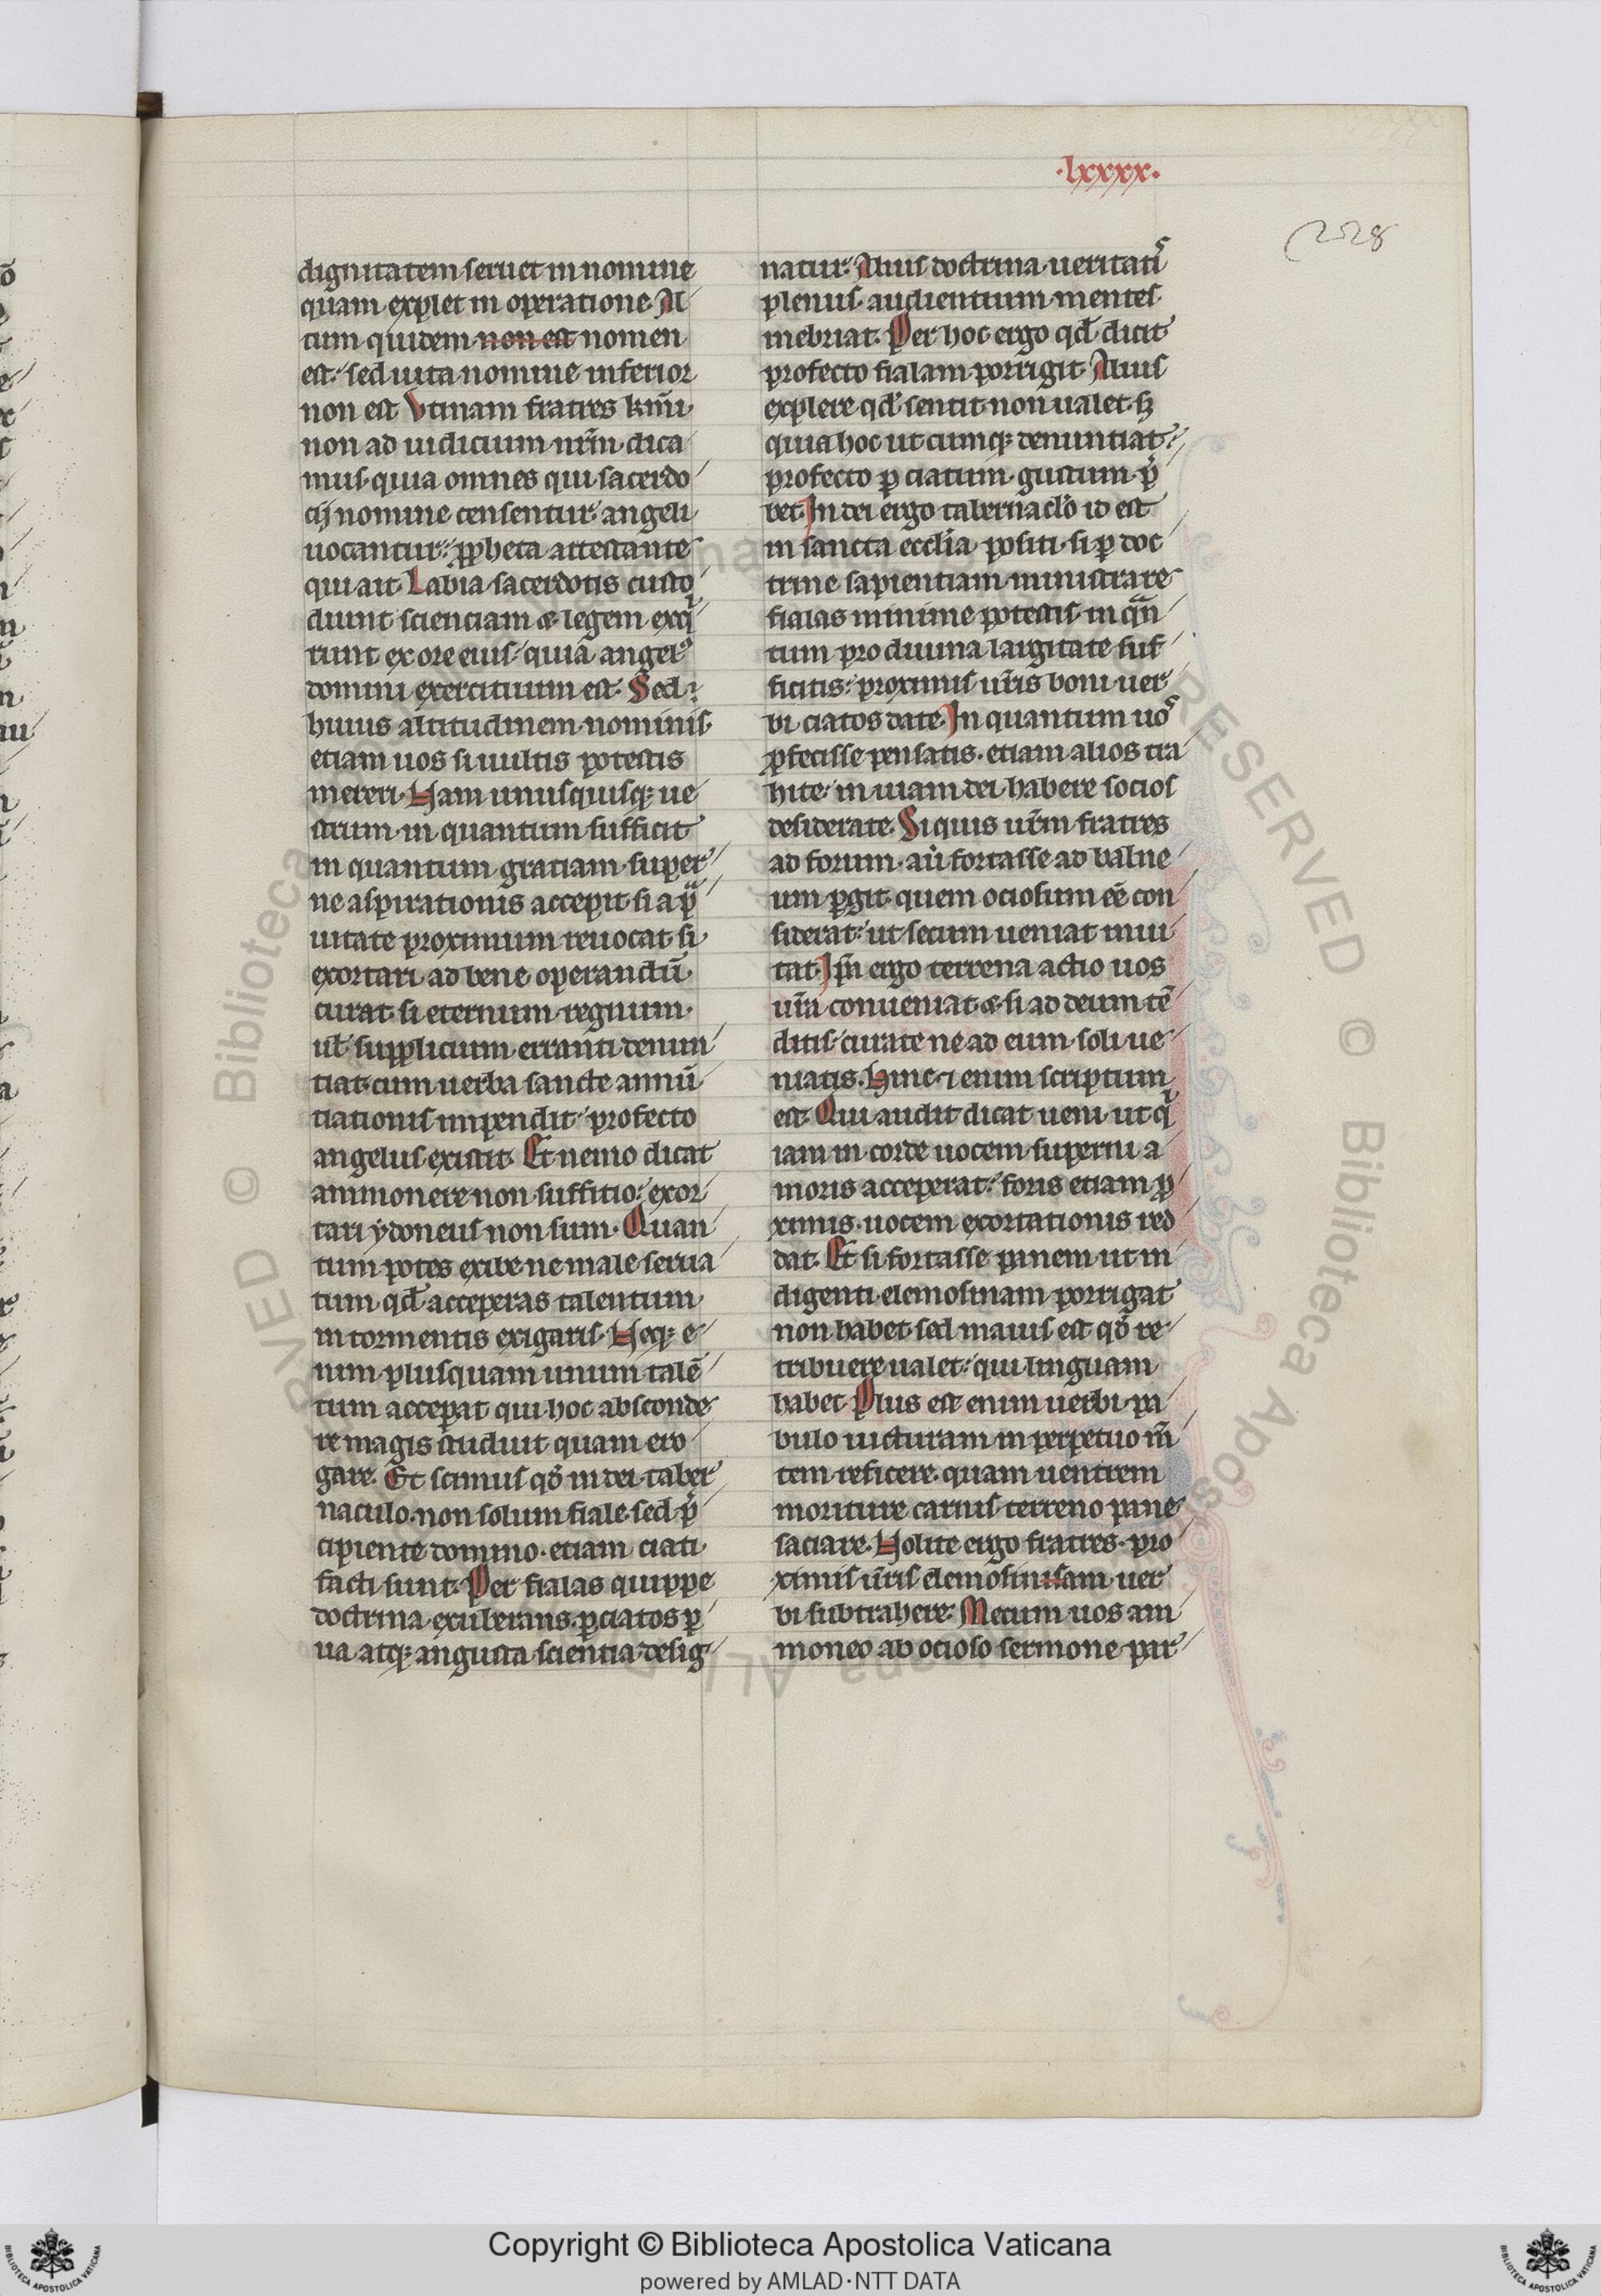 ·lxxxx·
228
dignitatem seruet in nomine
quam explet in operatione. Al
tum quidem non est nomen
est: sed uita nomine inferior
non est Vtinam fratres kmi
non ad iudicium nrm dica
mus quia omnes qui sacerdo
cij nomine censentur angeli
uocantur: ppheta attestante
qui ait Labia sacerdotis custo
diunt scienciam & legem exqi
runt ex ore eius quia angelꝰ
domini exercituum est. Sed
huius altitudinem nominis
etiam uos si uultis potestis
mereri. Nam unusquisq; ue
strum in quantum sufficit
in quantum gratiam super
ne aspirationis accepit si a pͣ
uitate proximum reuocat si
exortari ad bene operandū
curat si eternum regnum
ul supplicium erranti denun
tiat cum uerba sancte annū
tiationis impendit profecto
angelus existit. Et nemo dicat
ammonere non suffitio: exor
tari ydoneus non sum. Quan
tum potes exibe ne male serua
tum qd acceperas talentum
in tormentis exigaris. Neq; e
nim plusquam unum talē
tum acceꝑat qui hoc absconde
re magis studuit quam ero
gare. Et scimus qō in dei taber
naculo non solum fiale sed pͥ
cipiente domino etiam ciati
facti sunt. Per fialas quippe
doctrina exuberans ꝑ ciatos ꝑ
ua atq; angusta scientia desig
natur. Alius doctrina ueritatis
plenus audientium mentes
inebriat. Per hoc ergo qd dicit
profecto fialam porrigit Alius
explere qd sentit non ualet sz
quia hoc ut cumq; denuntiat
profecto ꝑ ciatum gustum pͥ
bet. In dei ergo tabernaclo id est
in sancta ecclia positi si ꝑ doc
trine sapientiam ministrare
fialas minime potestis in qͣn
tum pro diuina largitate suf
ficitis: proximis uris boni uer
bi ciatos date. In quantum uos
ꝓfecisse pensatis etiam alios tra
hite in uiam dei habere socios
desiderate. Si quis urm fratres
ad forum aū fortasse ad balne
um ꝑgit quem ociosum eē con
siderat: ut secum ueniat inui
tat. Ipa ergo terrena actio uos
ura conueniat & si ad deum tē
ditis curate ne ad eum soli ue
niatis. Hinc & enim scriptum
est Qui audit dicat ueni ut qi
iam in corde uocem superni a
moris acceperat: foris etiam ꝓ
ximis uocem exortationis red
dat. Et si fortasse panem ut in
digenti elemosinam porrigat
non habet sed maius est qō re
tribuere ualet: qui linguam
habet Plus est enim uerbi pa
bulo uicturam in perpetuo m̄
tem reficere quam uentrem
moriture carnis terreno pane
saciare. Nolite ergo fratres pro
ximis uris elemosinisam uer
bi subtrahere. Mecum uos am
moneo ab ocioso sermone par